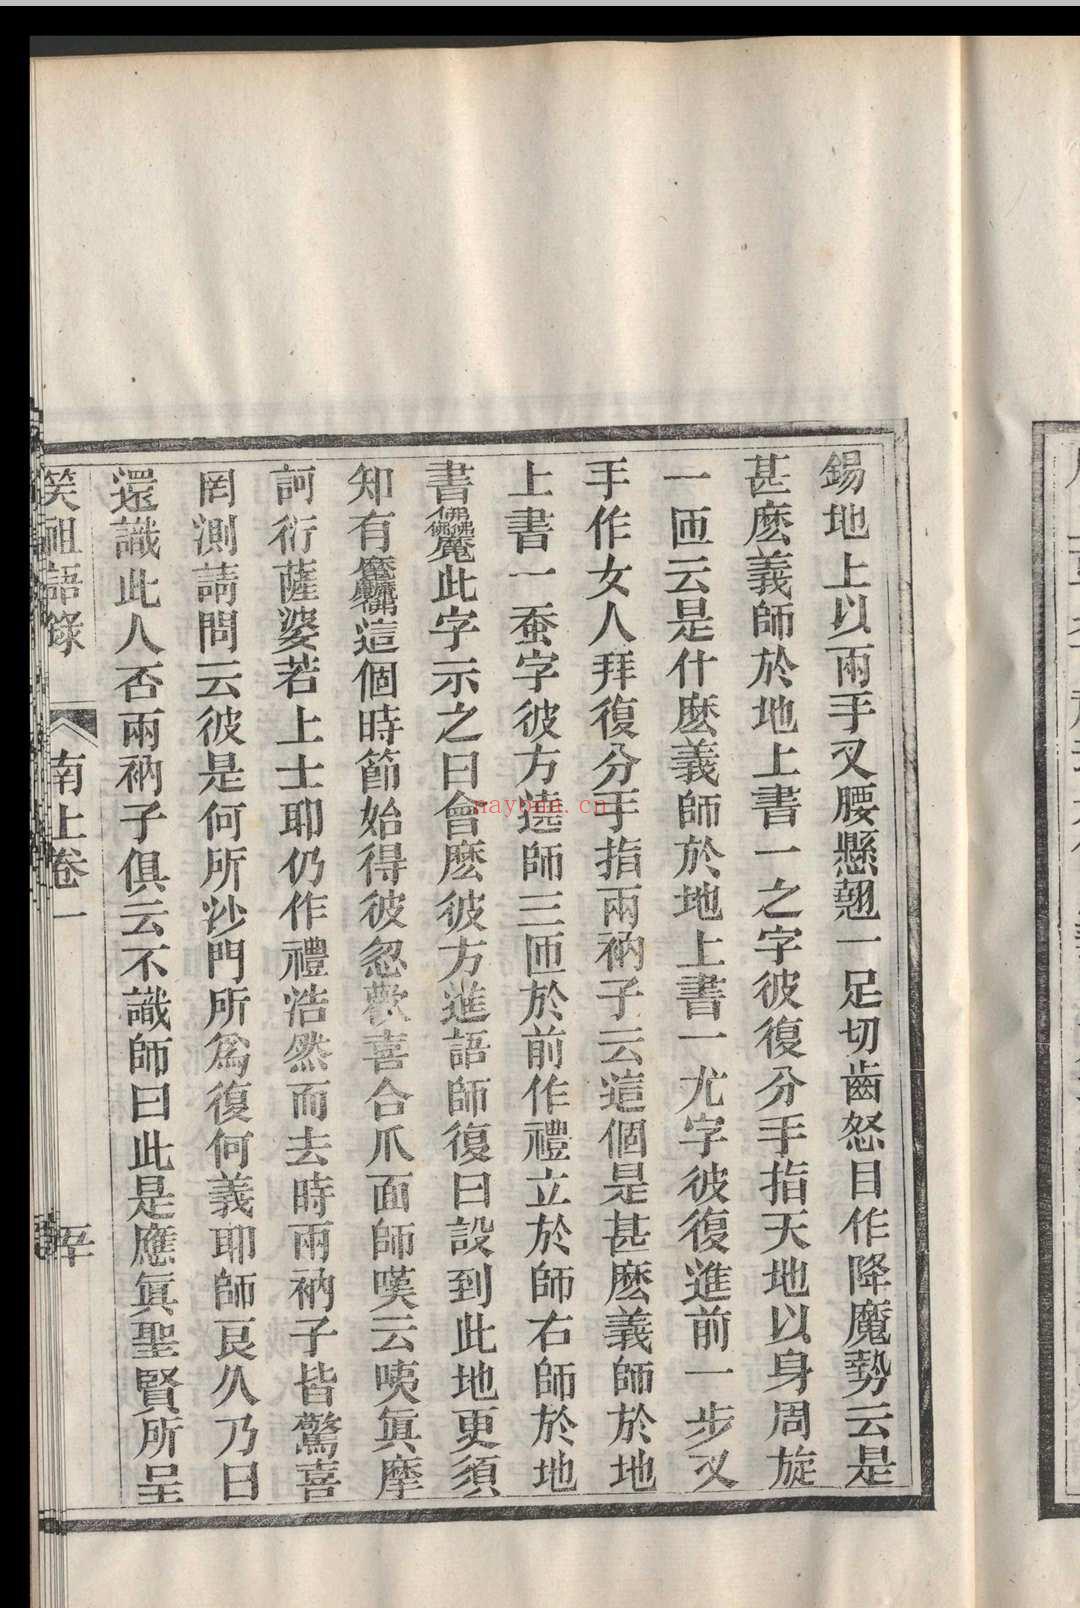 錫地上以兩手叉腰懸翹一足切齒怒目作降魔勢云是
甚麽義師於地上書一之字彼復分手指天地以身周旋
一匝云是什麽義師於地上書一尤字彼復進前一步叉
手作女人拜復分手指兩衲子云這個是甚麽義師於地
上書一蚕字彼方遶師三匝於前作禮立於師右師於地
書佛佛佛魔此字示之曰會麽彼方進語師復曰設到此地更須
知有魔魔魔佛這個時節始得彼忽歡喜合爪面師嘆云咦眞摩
訶衍薩婆若上士耶仍作禮浩然而去時兩衲子皆驚喜
罔測請問云彼是何所沙門所爲復何義耶師良久乃曰
還識此人否兩衲子俱云不識師曰此是應眞聖賢所呈
笑祖語錄 南上卷一 五
naybna.cn